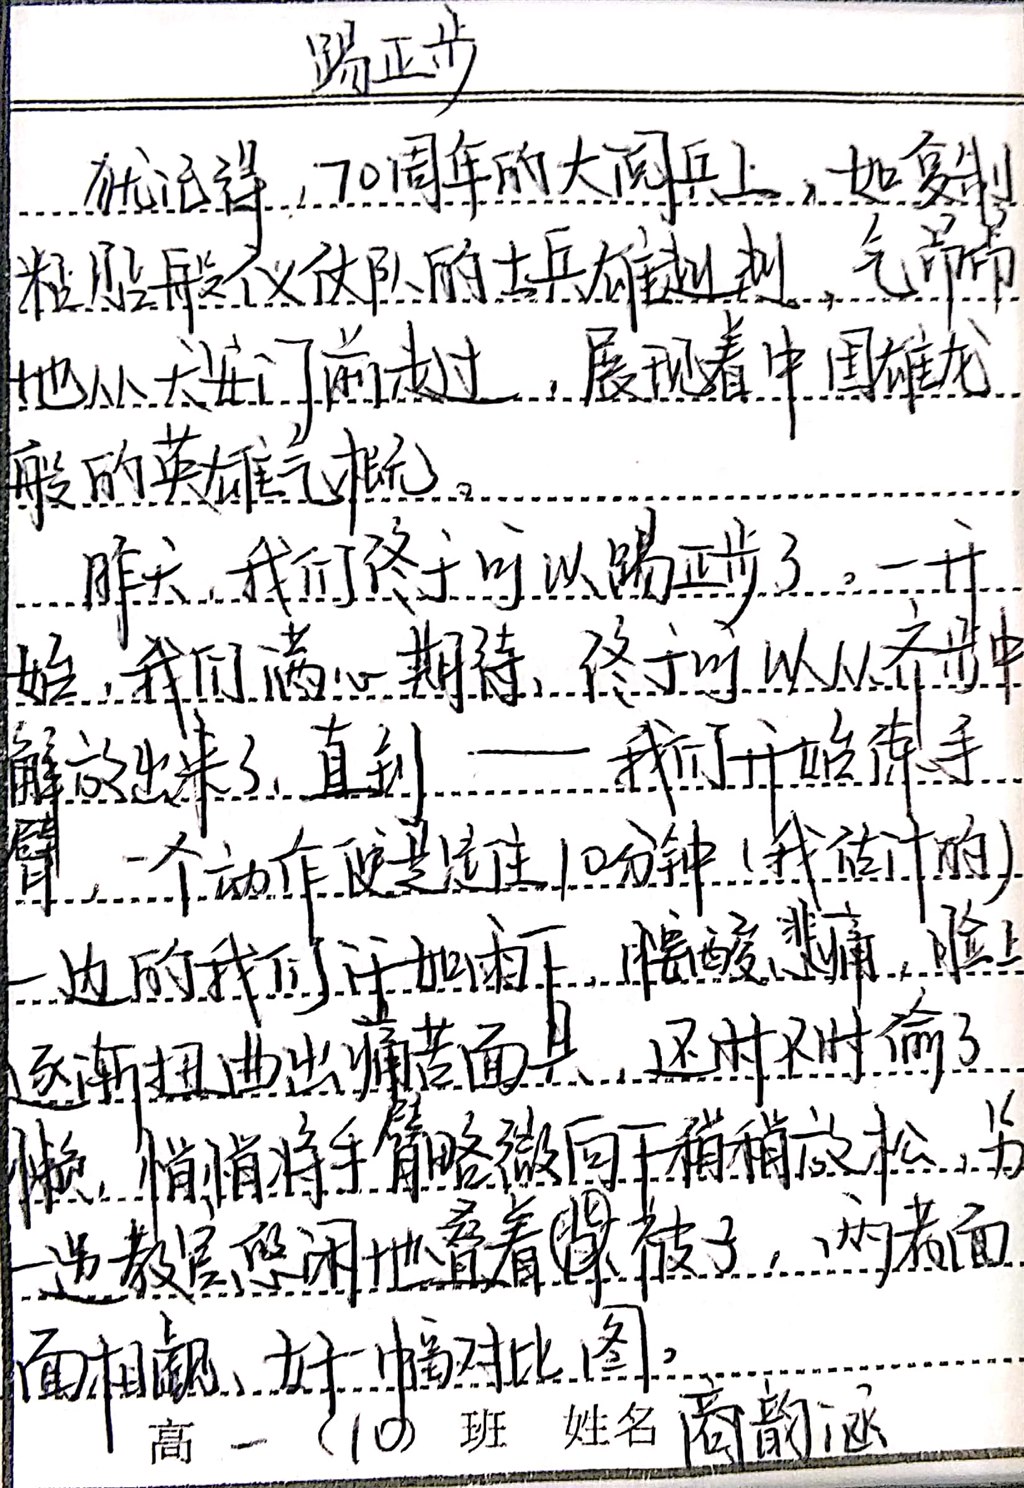 踢正步
犹记得,70周年的大阅兵上,如复制
粘贴般仪仗队的士兵雄赳赳,气昂昂
地从天安门前走过,展现着中国雄龙
般的英雄气概。
昨天,我们终于可以踢正步了。一开
始,我们满心期待,终于可以从齐步中
解放出来了,直到——我们开始练手
臂,一个动作硬是定住10分钟(我估计的)
一边的我们汗如雨下,腰酸悲痛,脸上
逐渐扭曲出痛苦面具,还时不时偷了
懒,悄悄将手臂略微向下稍稍放松,另
一边教官悠闲地叠着被子,两者面
面相觑,好一幅对比图。
高一(10)班 姓名 商韵涵